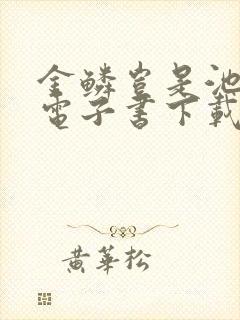 金鱗豈是池
電子書下載
黃華松